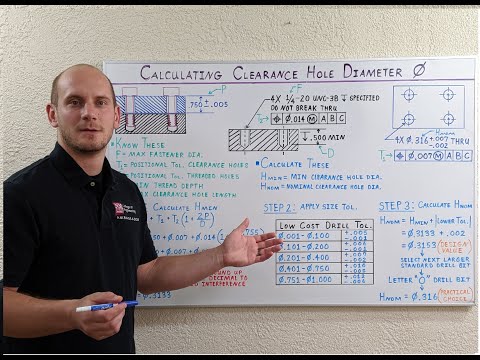 CALCULATING CLEARANCE HOLE DIAMETER Ø
P
.750±.005
F
4X 1/4-20 UNC-3B ↧ SPECIFIED
DO NOT BREAK THRU
T₂
⌖ Ø.014 Ⓜ A B C
.500 MIN
D
HNOM
4X Ø.316 +.007 -.002 THRU
T₁
⌖ Ø.007 Ⓜ A B C
KNOW THESE
F = MAX FASTENER DIA.
T₁ = POSITIONAL TOL. CLEARANCE HOLES
POSITIONAL TOL. THREADED HOLES
MIN THREAD DEPTH
MAX CLEARANCE HOLE LENGTH
CALCULATE THESE
HMIN = MIN CLEARANCE HOLE DIA.
HNOM = NOMINAL CLEARANCE HOLE DIA.
CALCULATE HMIN
+ T₁ + T₂(1+2P/D)
.250 + Ø.007 + Ø.014(1
.755)
ROUND UP
DECIMAL TO
INTERFERENCE
Ø.3133
STEP 2: APPLY SIZE TOL.
LOW COST DRILL TOL.
Ø.001-Ø.100
Ø.101-Ø.200
Ø.201-Ø.400
Ø.401-Ø.750
Ø.751-Ø1.000
STEP 3: CALCULATE HNOM
HNOM = HMIN + |LOWER TOL.|
= Ø.3133 + .002
= Ø.3153 DESIGN VALUE
SELECT NEXT LARGER
STANDARD DRILL BIT
LETTER "O" DRILL BIT
HNOM = Ø.316 PRACTICAL CHOICE